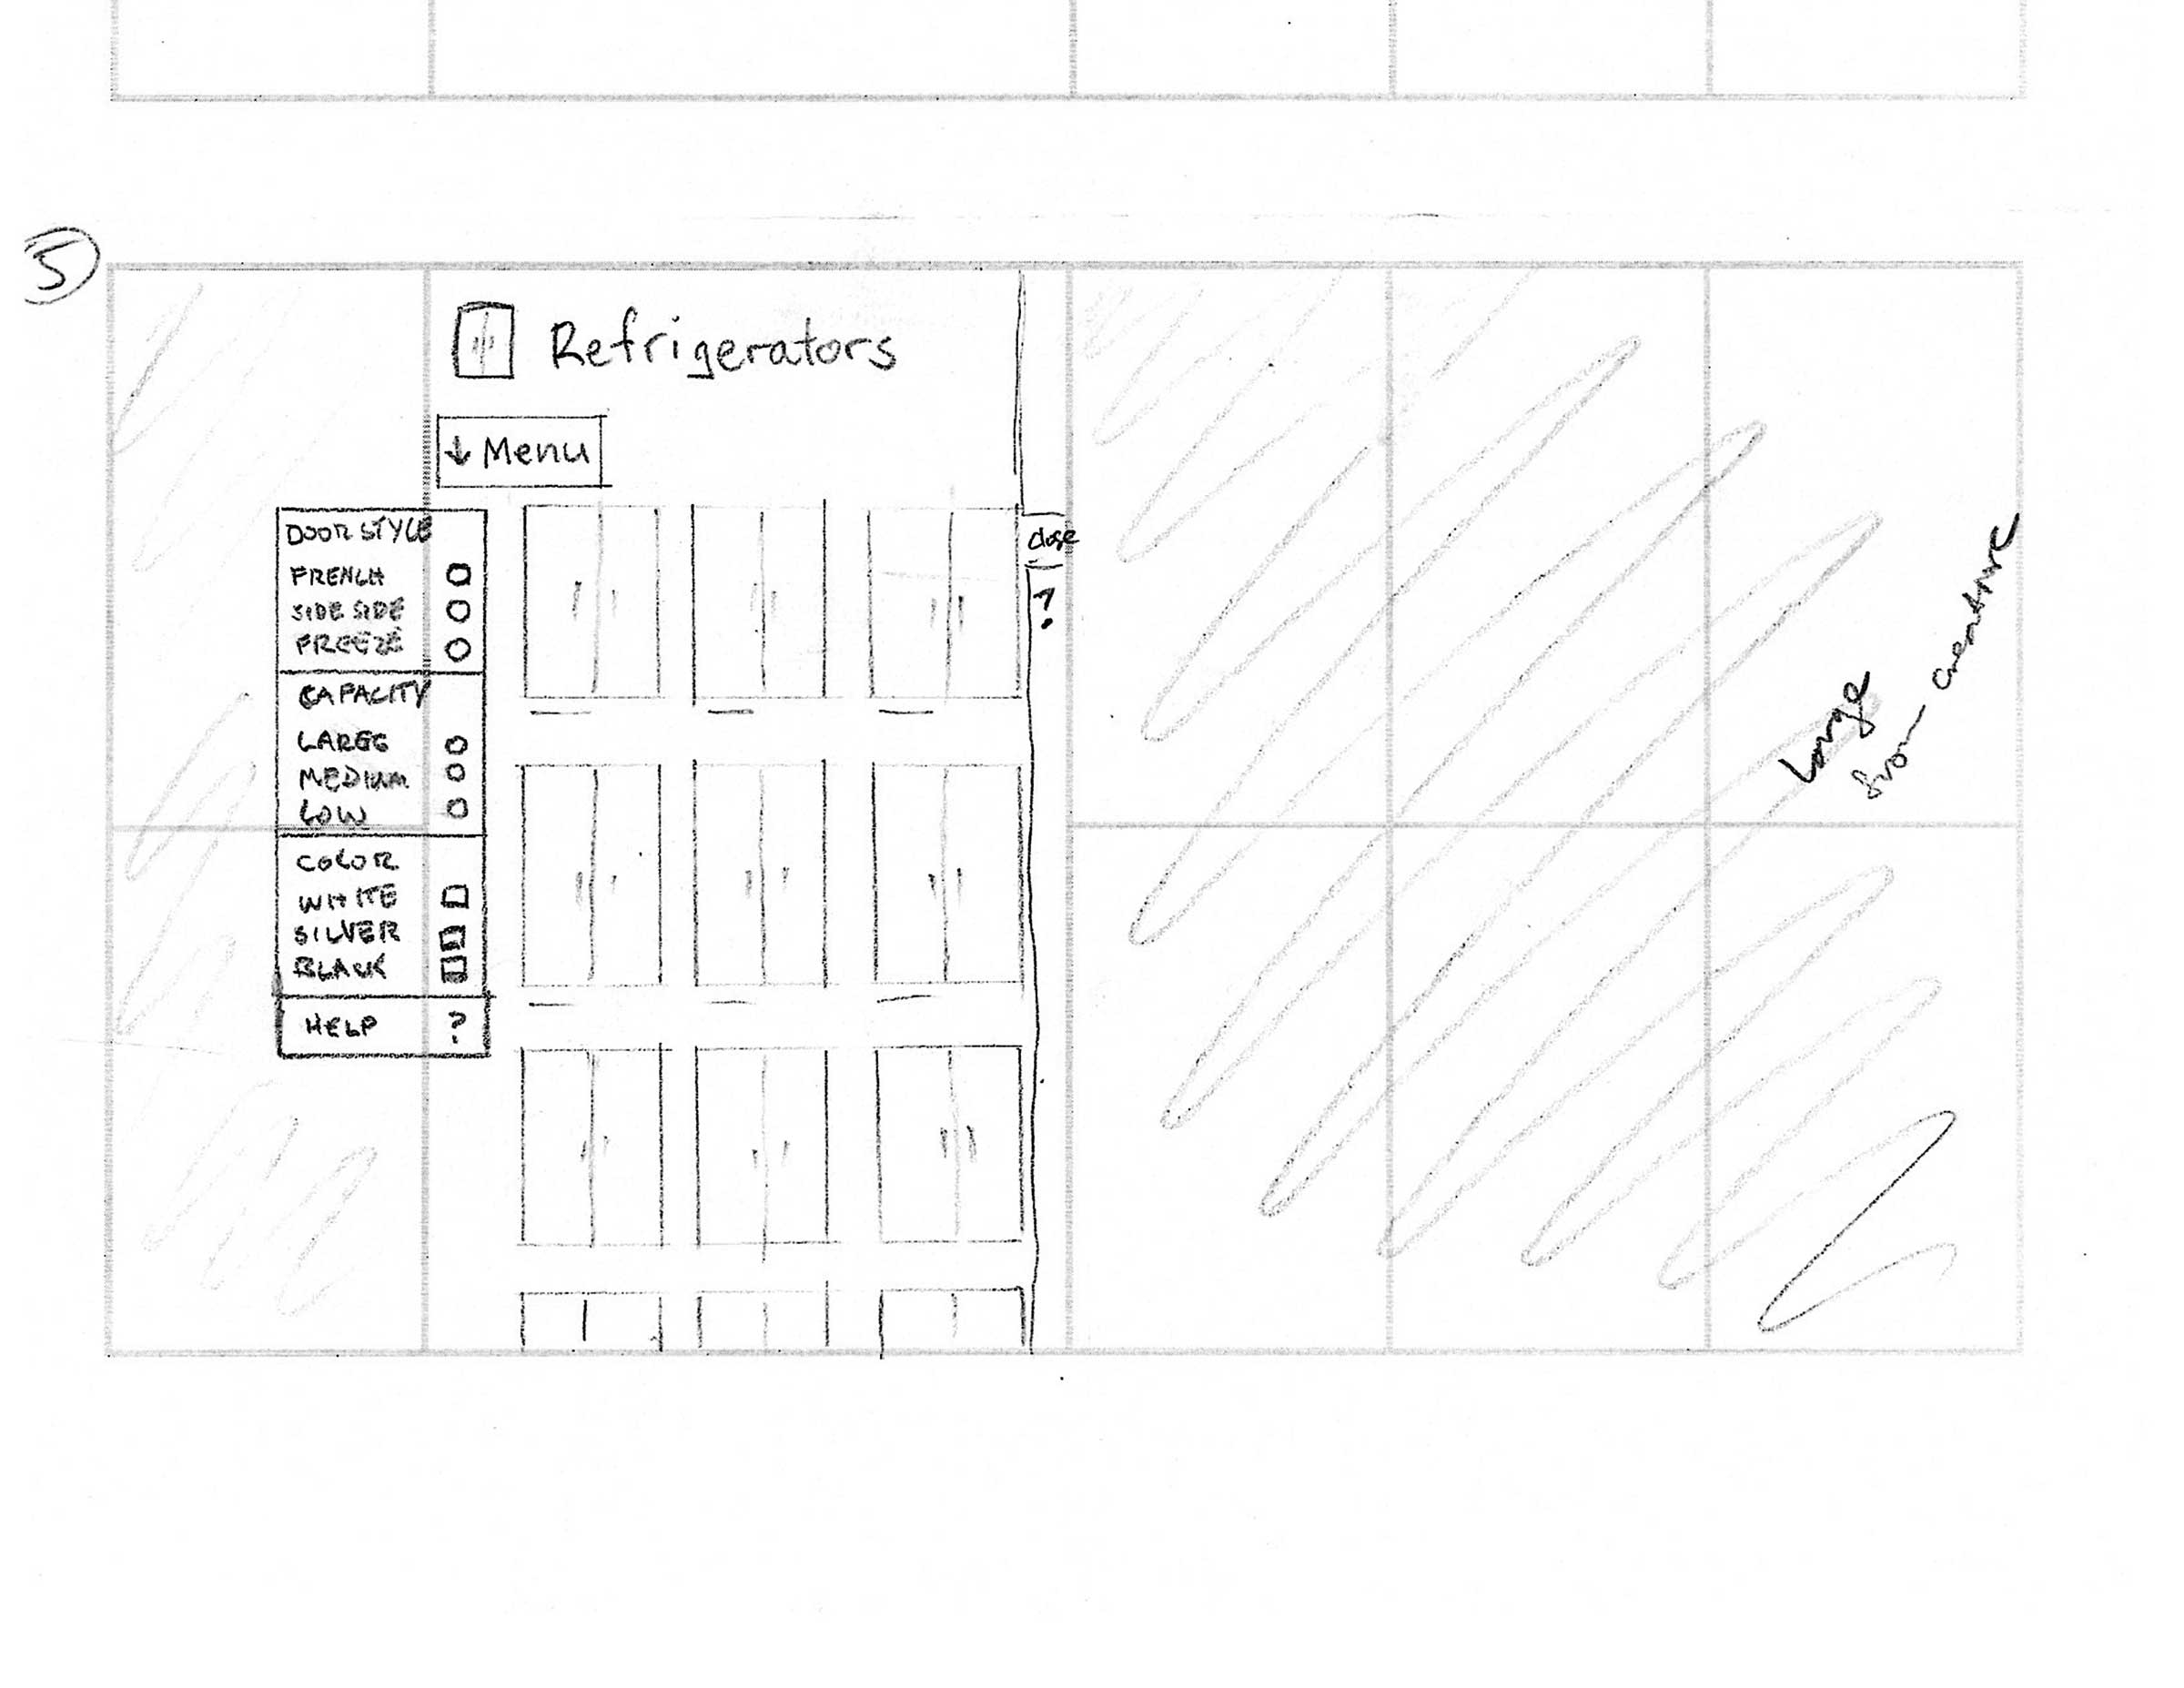 5
Refrigerators
↓ Menu
DOOR STYLE
FRENCH
SIDE SIDE
FREEZE
CAPACITY
LARGE
MEDIUM
LOW
COLOR
WHITE
SILVER
BLACK
HELP ?
close
?
from